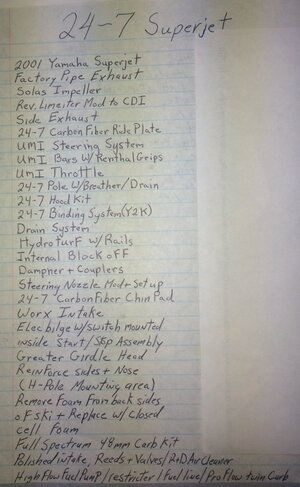 24-7 Superjet
2001 Yamaha Superjet
Factory Pipe Exhaust
Solas Impeller
Rev. Limeiter Mod to CDI
Side Exhaust
24-7 Carbon Fiber Ride Plate
UMI Steering System
UMI Bars W/ Renthal Grips
UMI Throttle
24-7 Pole W/Breather/Drain
24-7 Hood Kit
24-7 Binding System (Y2K)
Drain System
Hydroturf w/ Rails
Internal Block oFF
Dampner + Couplers
Steering Nozzle Mod + Setup
24-7 Carbon Fiber Chin Pad
Worx Intake
Elec bilge w/switch mounted
inside Start/Stop Assembly
Greater Girdle Head
Reinforce sides + Nose
(H-Pole Mounting area)
Remove Foam From back sides
oF ski + Replace w/ Closed
cell Foam
Full Spectrum 48mm Carb Kit
Polished intake, Reeds + Valves/ R+D Air Cleaner
High Flow Fuel Pump/restricter/Fuel line/Pro Flow twin Carb